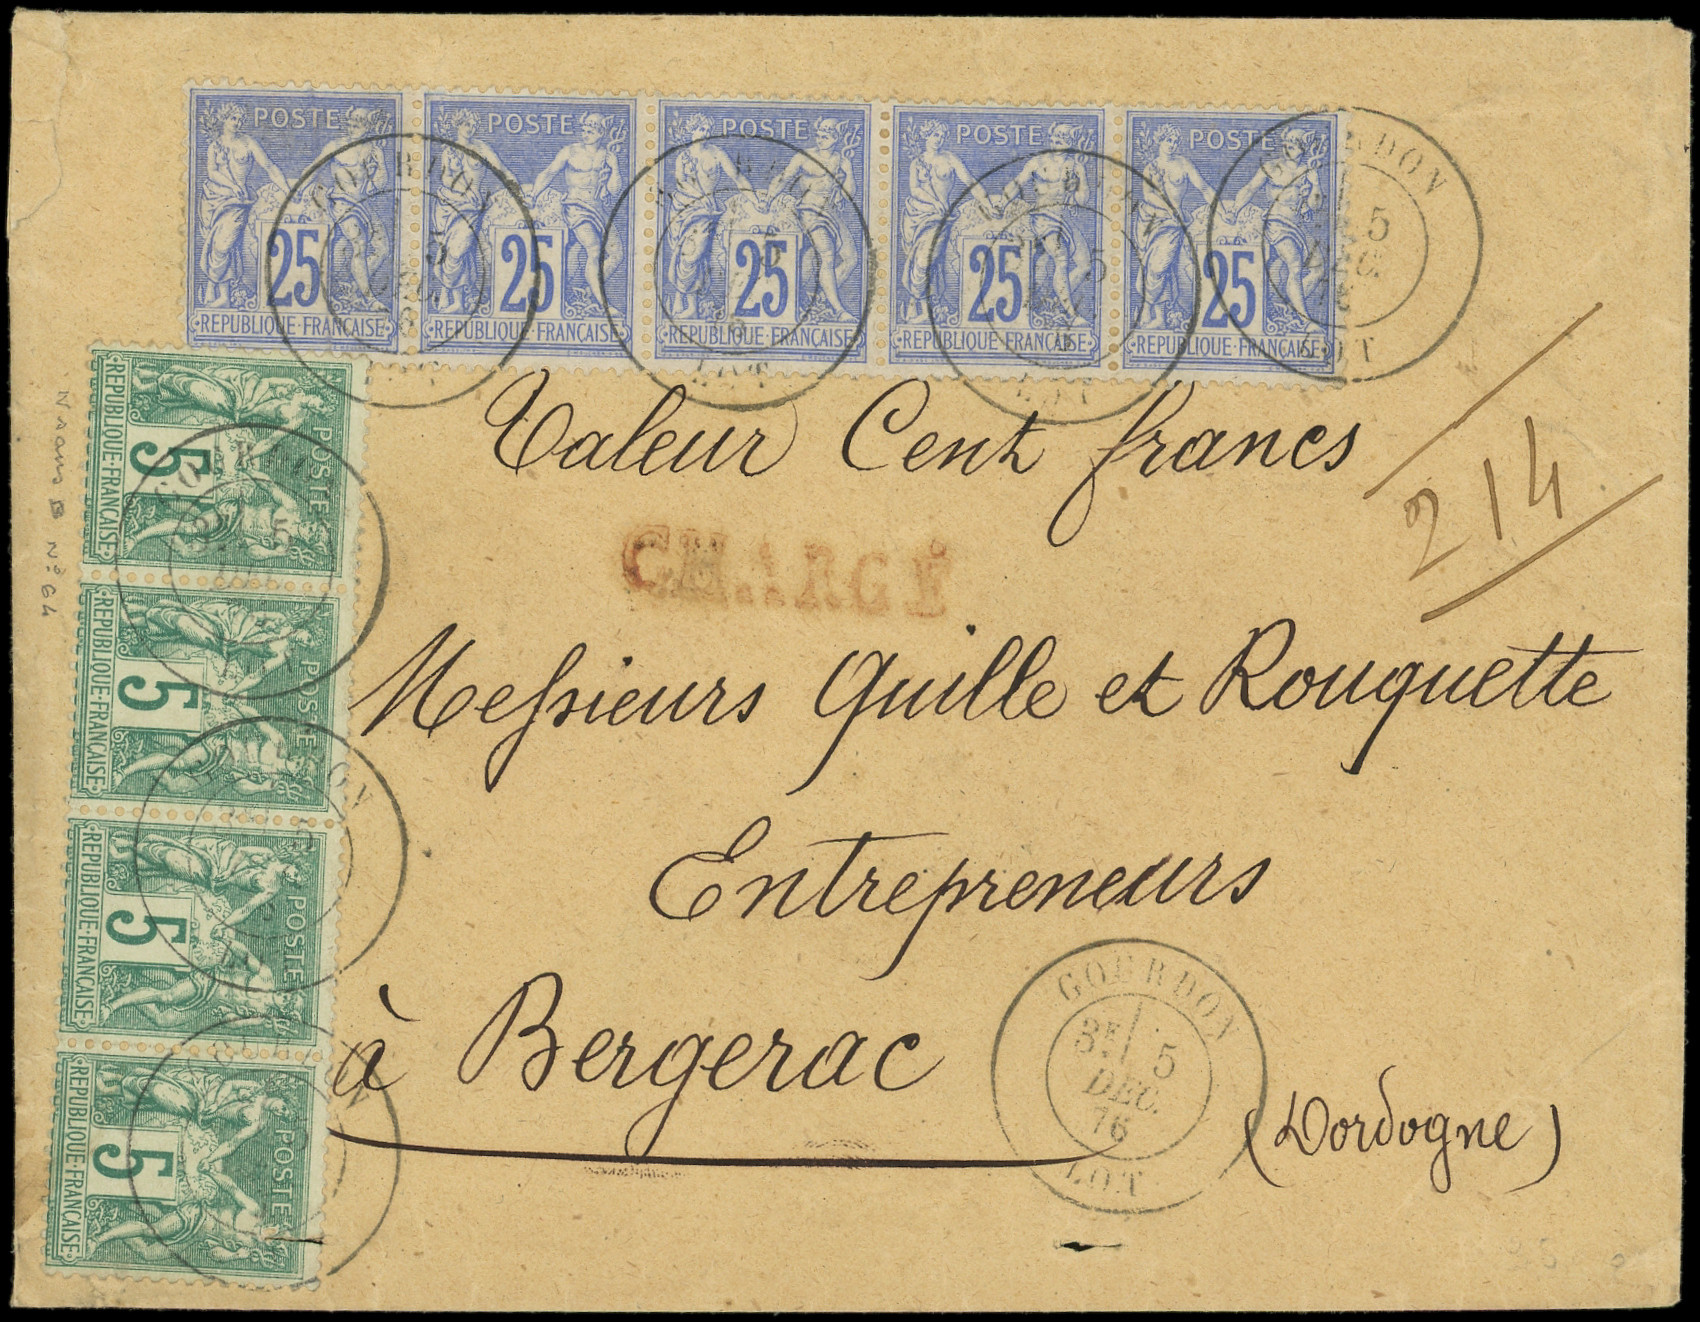 POSTE POSTE POSTE POSTE POSTE
25 25 25 25 25
REPUBLIQUE·FRANÇAISE REPUBLIQUE·FRANÇAISE REPUBLIQUE·FRANÇAISE REPUBLIQUE·FRANÇAISE REPUBLIQUE·FRANÇAISE
GOURDON
5
DEC.
LOT
GOURDON
LOT
GOURDON
5
LOT
GOURDON
5
DEC.
LOT
POSTE
5
REPUBLIQUE·FRANÇAISE
POSTE
5
REPUBLIQUE·FRANÇAISE
POSTE
5
REPUBLIQUE·FRANÇAISE
POSTE
5
REPUBLIQUE·FRANÇAISE
B Nº 64
Valeur Cent francs
214
CHARGÉ
Messieurs Guille et Rouquette
Entrepreneurs
à Bergerac
(Dordogne)
GOURDON
3E 5
DEC.
76
LOT